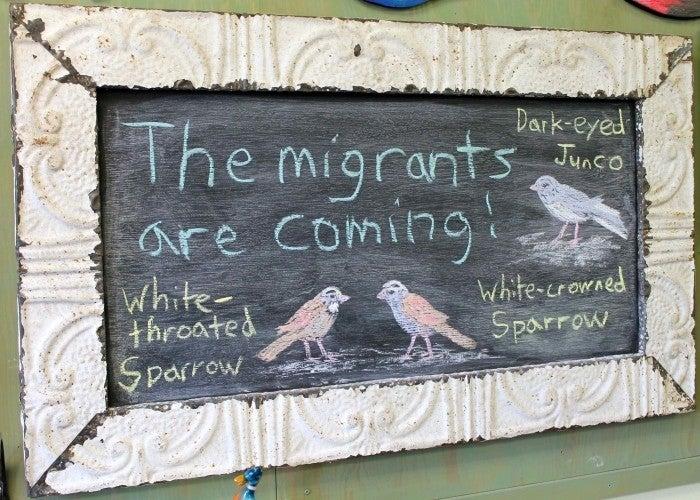 The migrants
are coming!
Dark-eyed
Junco
White-
throated
Sparrow
White-crowned
Sparrow